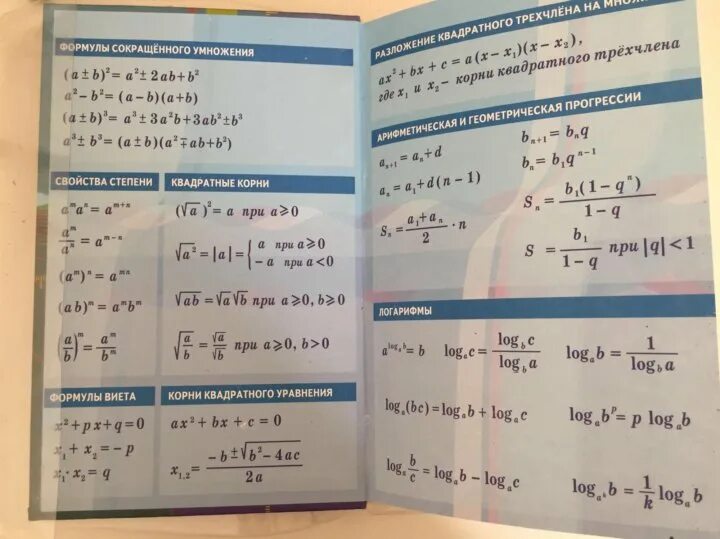 ФОРМУЛЫ СОКРАЩЁННОГО УМНОЖЕНИЯ
(a ± b)² = a² ± 2ab + b²
a² − b² = (a − b)(a + b)
(a ± b)³ = a³ ± 3a²b + 3ab² ± b³
a³ ± b³ = (a ± b)(a² ∓ ab + b²)
СВОЙСТВА СТЕПЕНИ
aᵐaⁿ = aᵐ⁺ⁿ
aᵐ/aⁿ = aᵐ⁻ⁿ
(aᵐ)ⁿ = aᵐⁿ
(ab)ᵐ = aᵐbᵐ
(a/b)ᵐ = aᵐ/bᵐ
КВАДРАТНЫЕ КОРНИ
(√a)² = a при a ⩾ 0
√a² = |a| = { a при a ⩾ 0
− a при a < 0
√ab = √a √b при a ⩾ 0, b ⩾ 0
√(a/b) = √a/√b при a ⩾ 0, b > 0
ФОРМУЛЫ ВИЕТА
x² + px + q = 0
x₁ + x₂ = − p
x₁ · x₂ = q
КОРНИ КВАДРАТНОГО УРАВНЕНИЯ
ax² + bx + c = 0
x₁,₂ = (−b ± √(b² − 4ac))/2a
РАЗЛОЖЕНИЕ КВАДРАТНОГО ТРЕХЧЛЕНА НА
ax² + bx + c = a(x − x₁)(x − x₂),
где x₁ и x₂ − корни квадратного трёхчлена
АРИФМЕТИЧЕСКАЯ И ГЕОМЕТРИЧЕСКАЯ ПРОГРЕССИИ
aₙ₊₁ = aₙ + d
aₙ = a₁ + d(n − 1)
Sₙ = (a₁ + aₙ)/2 · n
bₙ₊₁ = bₙq
bₙ = b₁qⁿ⁻¹
Sₙ = b₁(1 − qⁿ)/(1 − q)
S = b₁/(1 − q) при |q| < 1
ЛОГАРИФМЫ
a^(logₐb) = b logₐc = log_b c/log_b a logₐb = 1/log_b a
logₐ(bc) = logₐb + logₐc logₐbᵖ = p logₐb
logₐ(b/c) = logₐb − logₐc log_(aᵏ) b = (1/k) logₐb